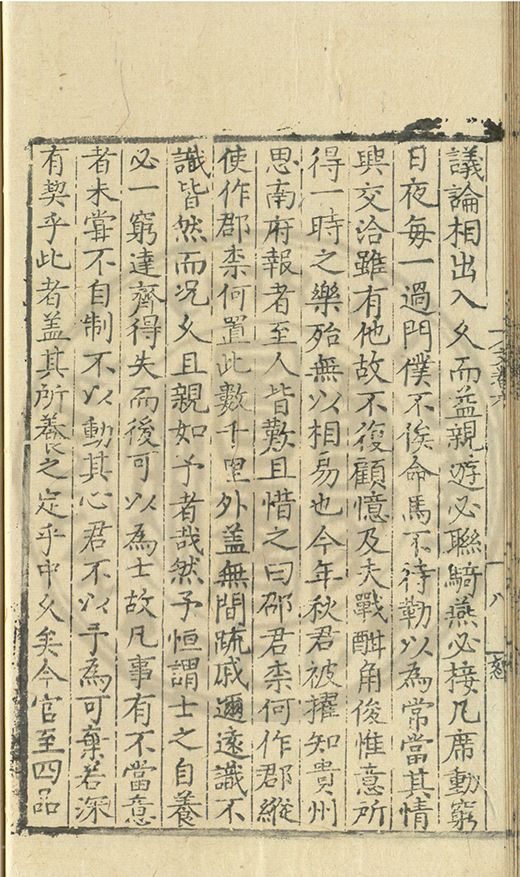 議論相出入久而益親遊必聯騎燕必接几席動窮
日夜每一過門僕不俟命馬不待勒以為常當其情
興交洽雖有他故不復顧憶及夫戰酣角俊惟意所
得一時之樂殆無以相易也今年秋君被擢知貴州
思南府報者至人皆歎且惜之曰邵君柰何作郡縱
使作郡柰何置此數千里外盖無間踈戚邇遠識不
識皆然而况久且親如予者哉然予恒謂士之自養
必一窮達齊得失而後可以為士故凡事有不當意
者未嘗不自制不以動其心君不以予為可棄若深
有契乎此者盖其所養之定乎中久矣今官至四品
八